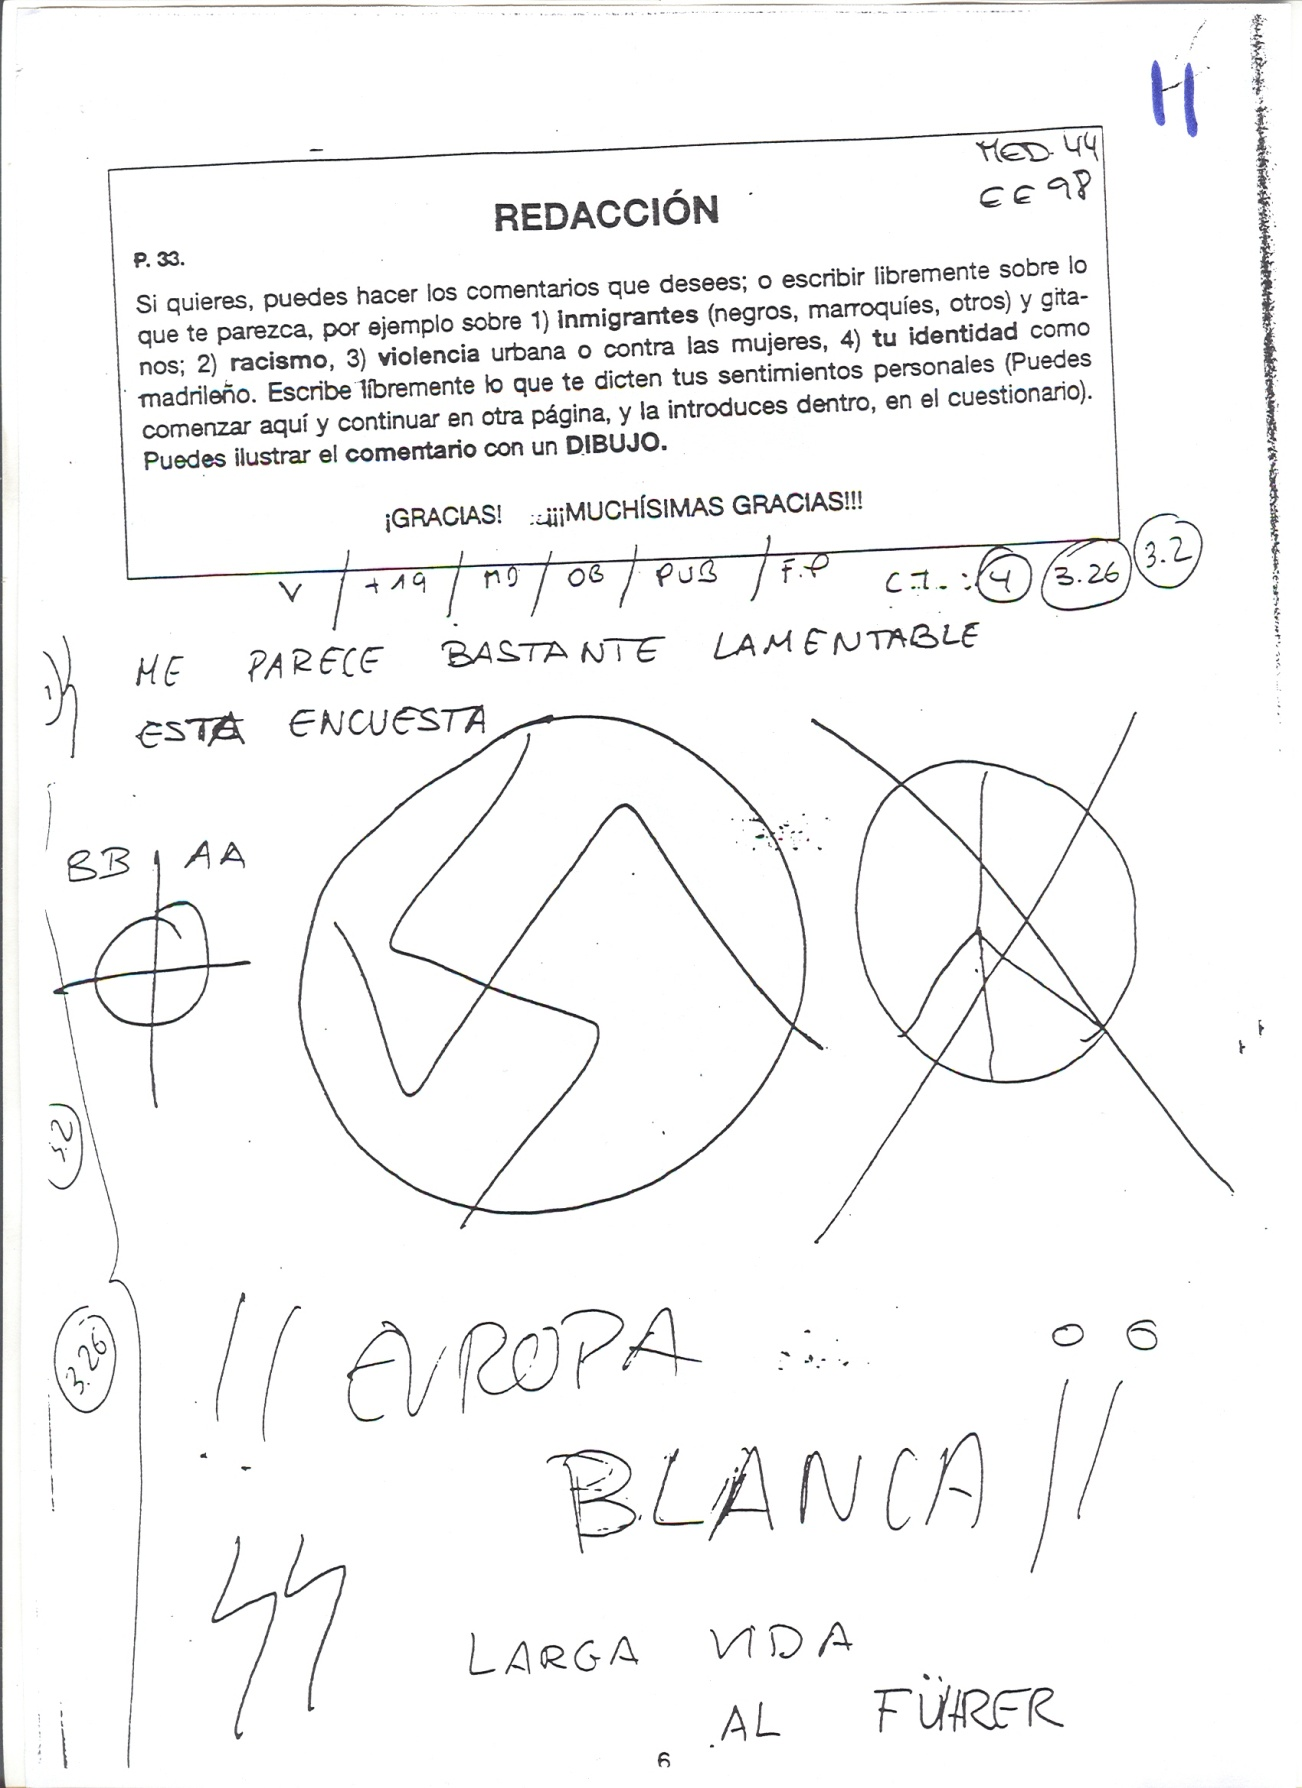 H
MED. 44
EE 98
REDACCIÓN
P. 33.
Si quieres, puedes hacer los comentarios que desees; o escribir libremente sobre lo
que te parezca, por ejemplo sobre 1) inmigrantes (negros, marroquíes, otros) y gita-
nos; 2) racismo, 3) violencia urbana o contra las mujeres, 4) tu identidad como
madrileño. Escribe libremente lo que te dicten tus sentimientos personales (Puedes
comenzar aquí y continuar en otra página, y la introduces dentro, en el cuestionario).
Puedes ilustrar el comentario con un DIBUJO.
¡GRACIAS! ¡¡¡MUCHÍSIMAS GRACIAS!!!
V / +19 / MD / OB / PUB / F.P C.I. : 4 3.26 3.2
ME PARECE BASTANTE LAMENTABLE
ESTA ENCUESTA
BB AA
3.2
3.26
!! EVROPA
BLANCA !!
LARGA VIDA
AL FÜHRER
6